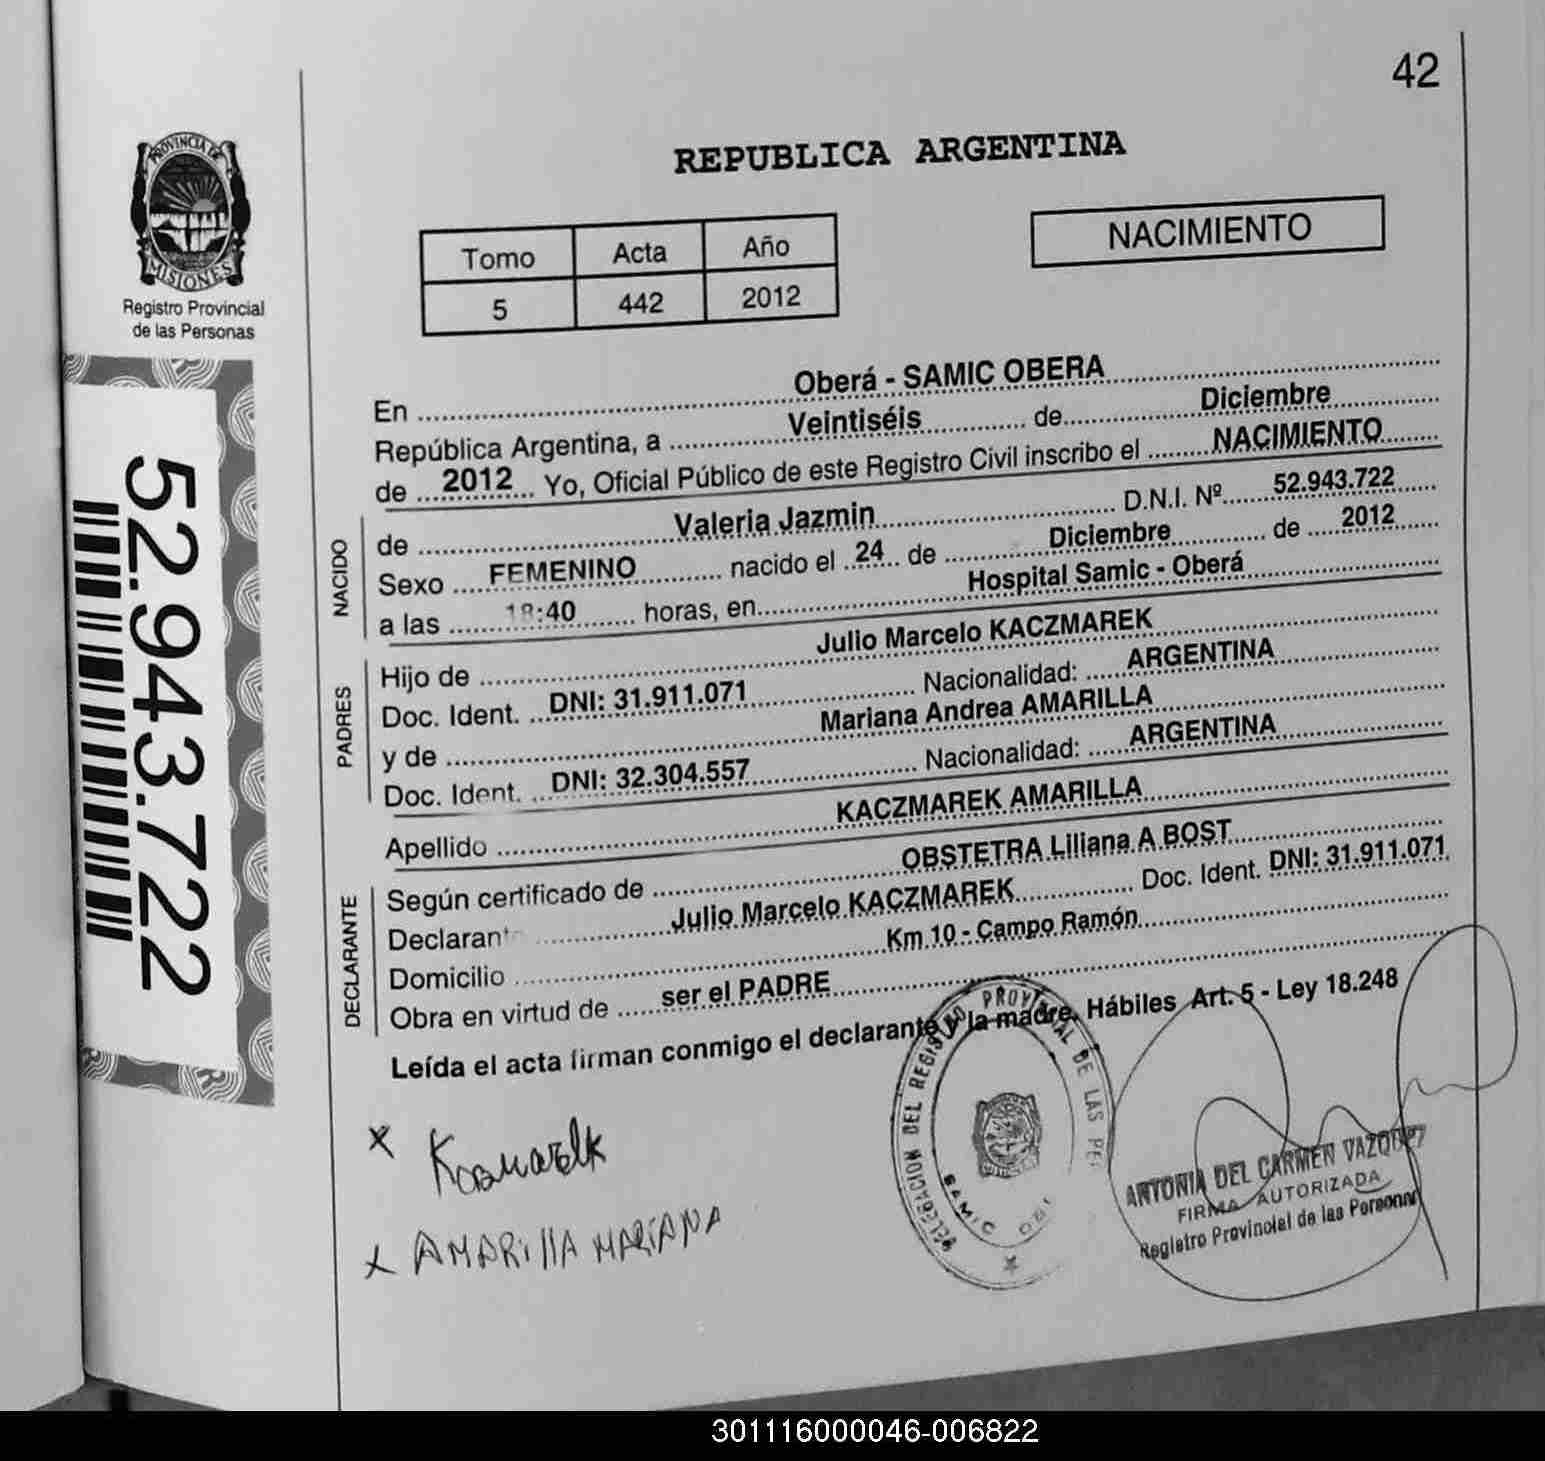 42
PROVINCIA DE
MISIONES
Registro Provincial
de las Personas
52.943.722
REPUBLICA ARGENTINA
NACIMIENTO
Tomo Acta Año
5 442 2012
En Oberá - SAMIC OBERA
República Argentina, a Veintiséis de Diciembre
de 2012 Yo, Oficial Público de este Registro Civil inscribo el NACIMIENTO
NACIDO
de Valeria Jazmin D.N.I. Nº 52.943.722
Sexo FEMENINO nacido el 24 de Diciembre de 2012
a las 18:40 horas, en Hospital Samic - Oberá
PADRES
Hijo de Julio Marcelo KACZMAREK
Doc. Ident. DNI: 31.911.071 Nacionalidad: ARGENTINA
y de Mariana Andrea AMARILLA
Doc. Ident. DNI: 32.304.557 Nacionalidad: ARGENTINA
Apellido KACZMAREK AMARILLA
DECLARANTE
Según certificado de OBSTETRA Liliana A BOST
Declarante Julio Marcelo KACZMAREK Doc. Ident. DNI: 31.911.071
Domicilio Km 10 - Campo Ramón
Obra en virtud de ser el PADRE
Leída el acta firman conmigo el declarante y la madre. Hábiles Art. 5 - Ley 18.248
x
x AMARILLA MARIANA
DELEGACION DEL REGISTRO PROVINCIAL DE LAS PER
SAMIC OBE
ANTONIA DEL CARMEN VAZQUEZ
FIRMA AUTORIZADA
Registro Provincial de las Personas
301116000046-006822